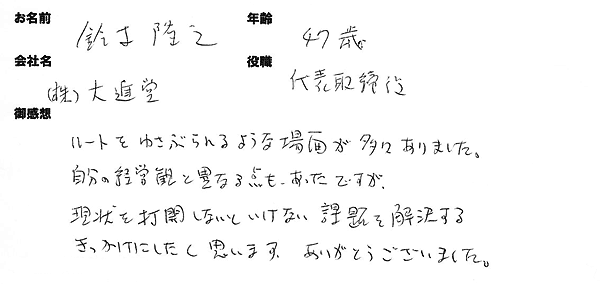 お名前 鈴木 隆之 年齢 47歳
会社名 (株)大進堂 役職 代表取締役
御感想
ルートをゆさぶられるような場面が多々ありました。
自分の経営観と異なる点も、あったですが、
現状を打開しないといけない課題を解決する
きっかけにしたく思います。ありがとうございました。